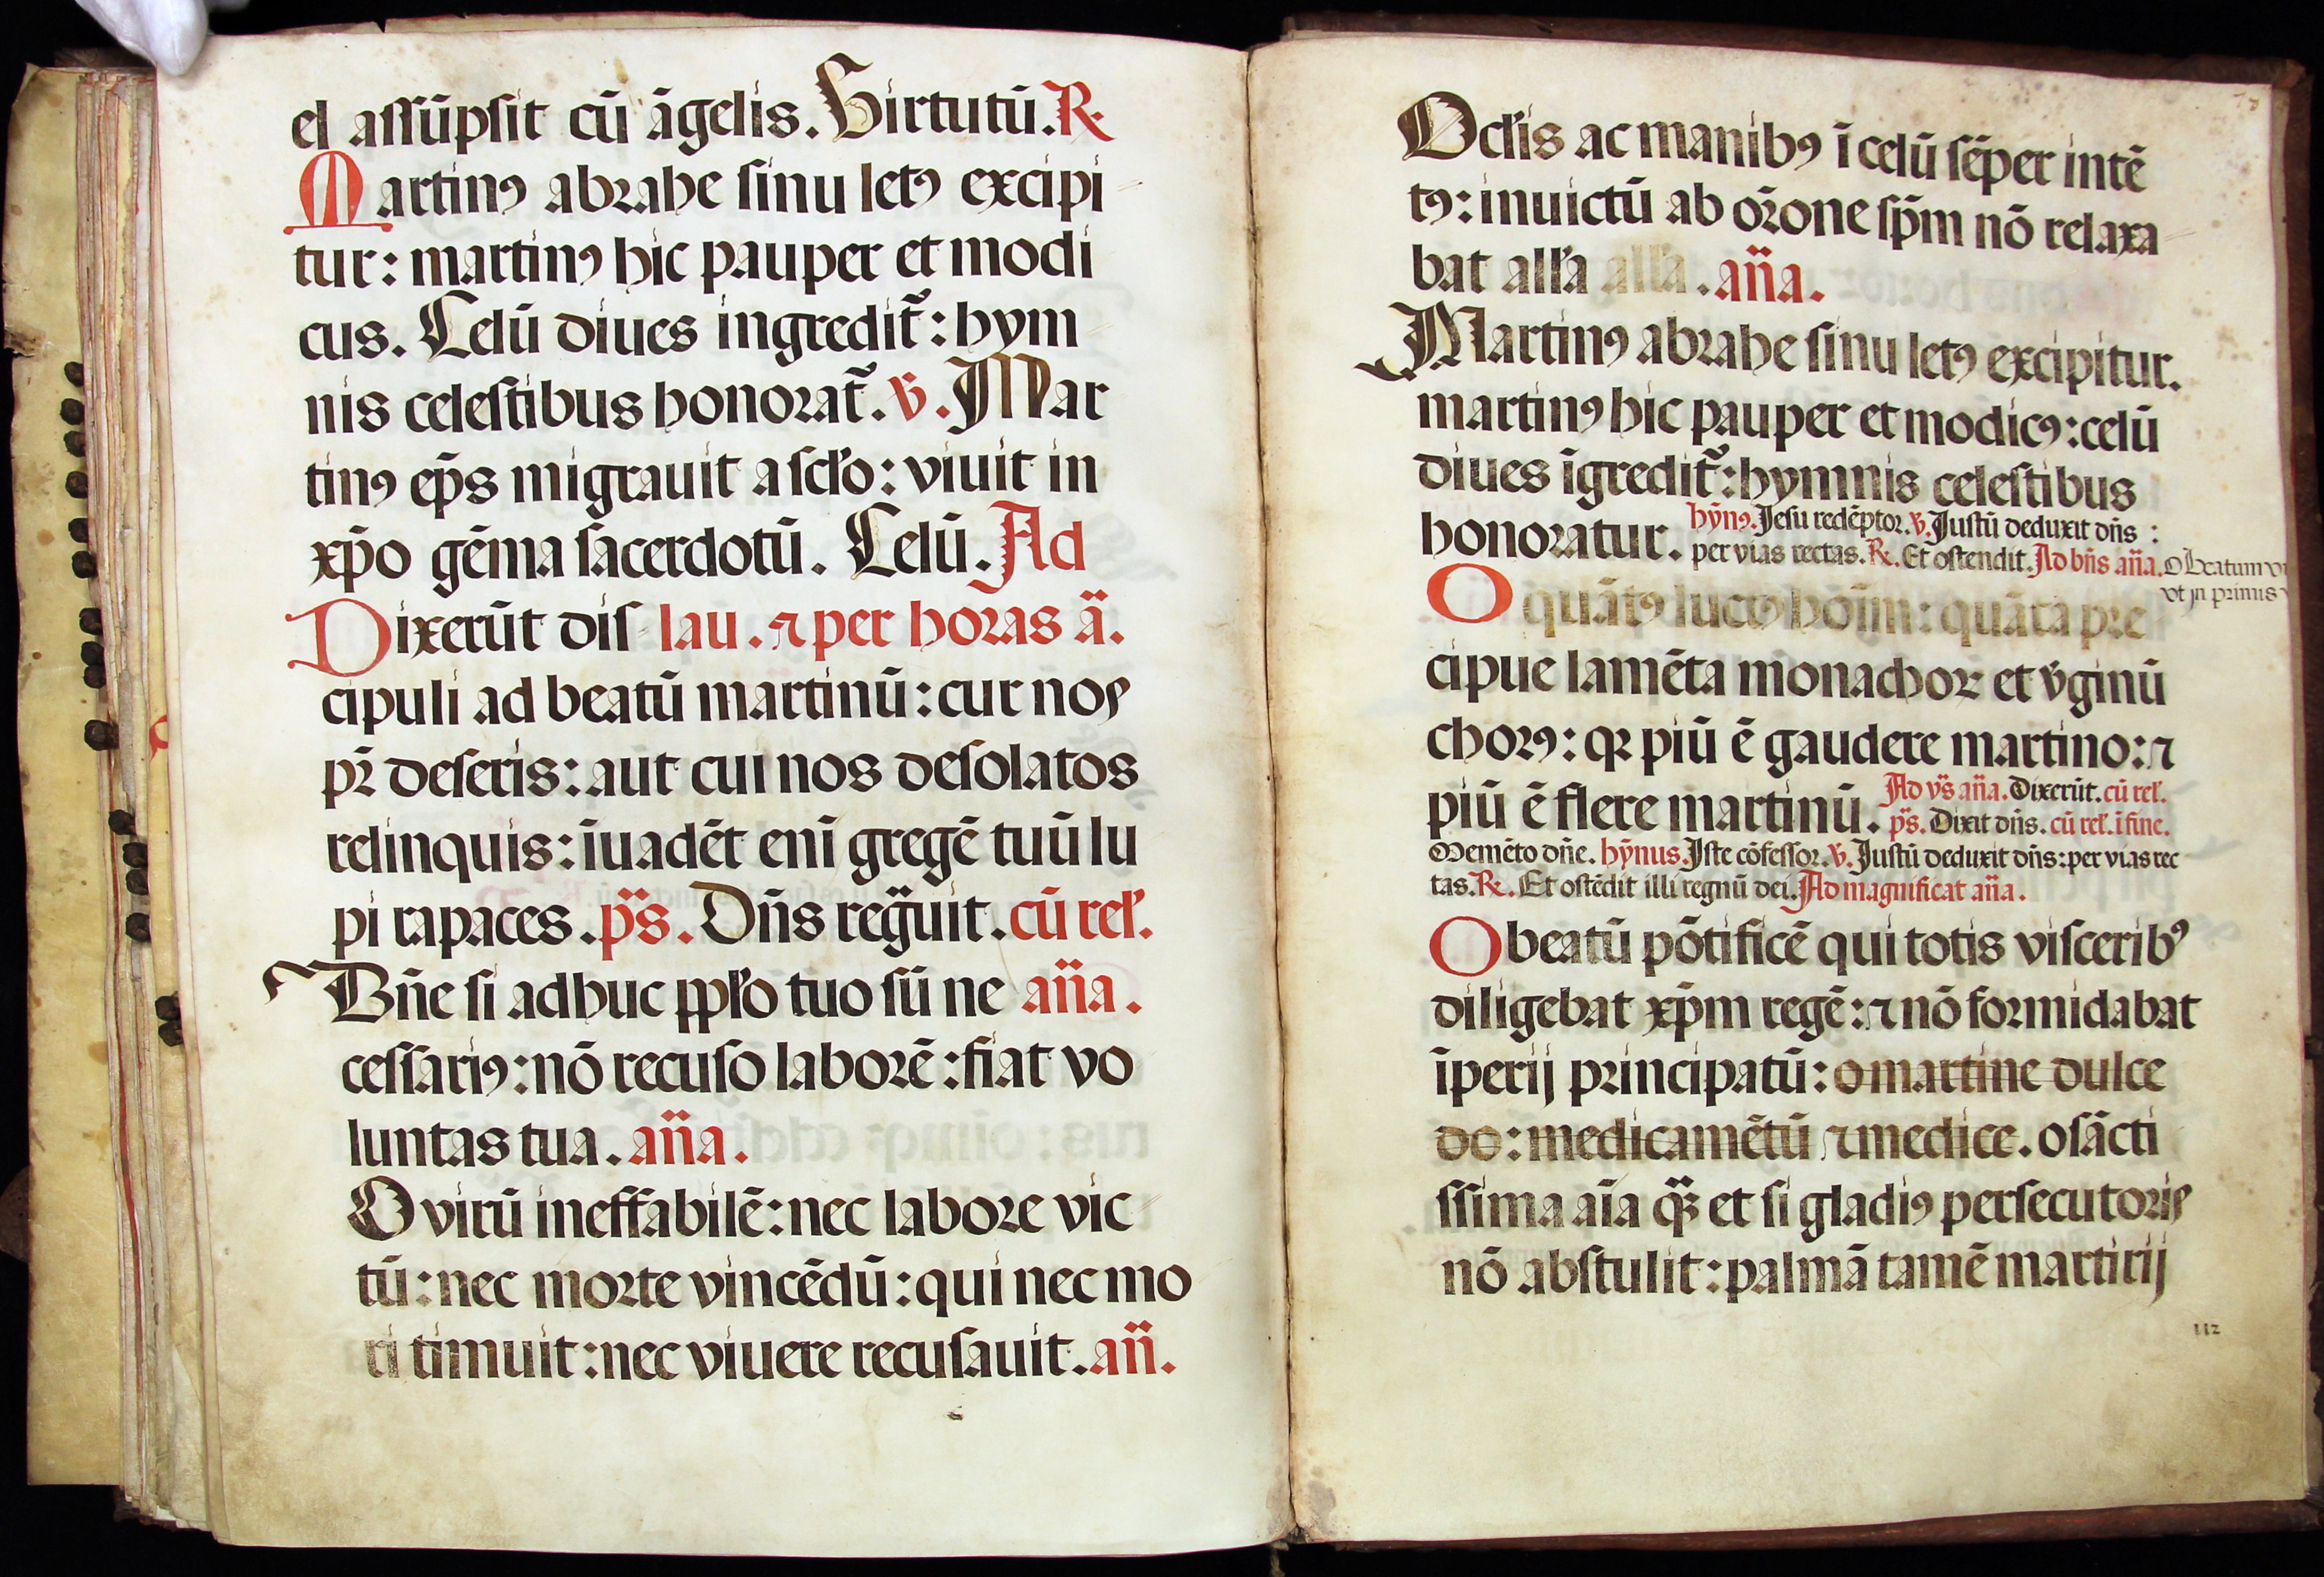 el aſſūpſit cū āgelis. Virtutū. ℟.
Martinꝰ abrahe ſinu letꝰ excipi
tur: martinꝰ hic pauper et modi
cus. Celū diues ingredit̃: hym
nis celeſtibus honorat̃. ℣. Mar
tinꝰ ep̄s migrauit a ſcło: viuit in
xp̄o gēma ſacerdotū. Celū. Ad
Dixerūt diſ lau. ⁊ per horas ā.
cipuli ad beatū martinū: cur nos
pr̄ deſeris: aut cui nos deſolatos
relinquis: īuadēt enī gregē tuū lu
pi rapaces. p̄s. Dn̄s regāuit. cū reł.
Dn̄e ſi adhuc ppło tuo ſū ne an̄a.
ceſſariꝰ: nō recuſo laborē: fiat vo
luntas tua. an̄a.
O virū ineffabilē: nec labore vic
tū: nec morte vincēdū: qui nec mo
ri timuit: nec viuere recuſauit. an̄.
73
Ocłis ac manibꝰ ī celū ſēper intē
tꝰ: inuictū ab or̄one ſp̄m nō relaxa
bat ałła ałła. an̄a.
Martinꝰ abrahe ſinu letꝰ excipitur.
martinꝰ hic pauper et modicꝰ: celū
diues īgredit̃: hymnis celeſtibus
honoratur. hȳnꝰ. Jeſu redēptor. ℣. Juſtū deduxit dn̄s:
per vias rectas. ℟. Et oſtendit. Ad bn̄s an̄a. O Beatum
vt jn primis
O quātꝰ luctꝰ hōīm: quāta pre
cipue lamēta monachoꝝ et v̄ginū
chorꝰ: qꝛ piū ē gaudere martino: ⁊
piū ē flere martinū. Ad vs̄ an̄a. Dixerūt. cū reł.
p̄s. Dixit dn̄s. cū reł. ī fine.
Memēto dn̄e. hȳnus. Jſte cōfeſſor. ℣. Juſtū deduxit dn̄s: per vias rec
tas. ℟. Et oſtēdit illi regnū dei. Ad magnificat an̄a.
O beatū pōtificē qui totis viſceribꝰ
diligebat xp̄m regē: ⁊ nō formidabat
īperij principatū: o martine dulce
do: medicamētū ⁊ medice. o ſācti
ſſima aīa quā et ſi gladiꝰ perſecutoris
nō abſtulit: palmā tamē martirij
112